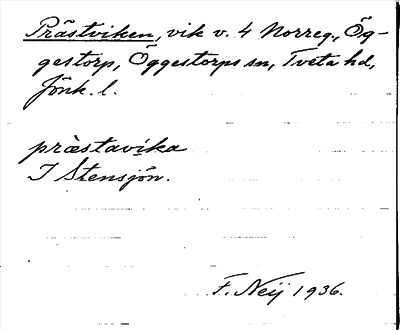 Prästviken, vik v. 4 Norreg., Ög-
gestorp, Öggestorps sn, Tveta hd,
Jönk. l.
præ̀stavika
I Stensjön.
F. Neij 1936.